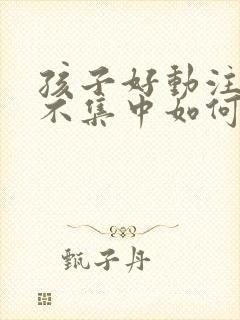 孩子好動注
不集中如何
甄子丹